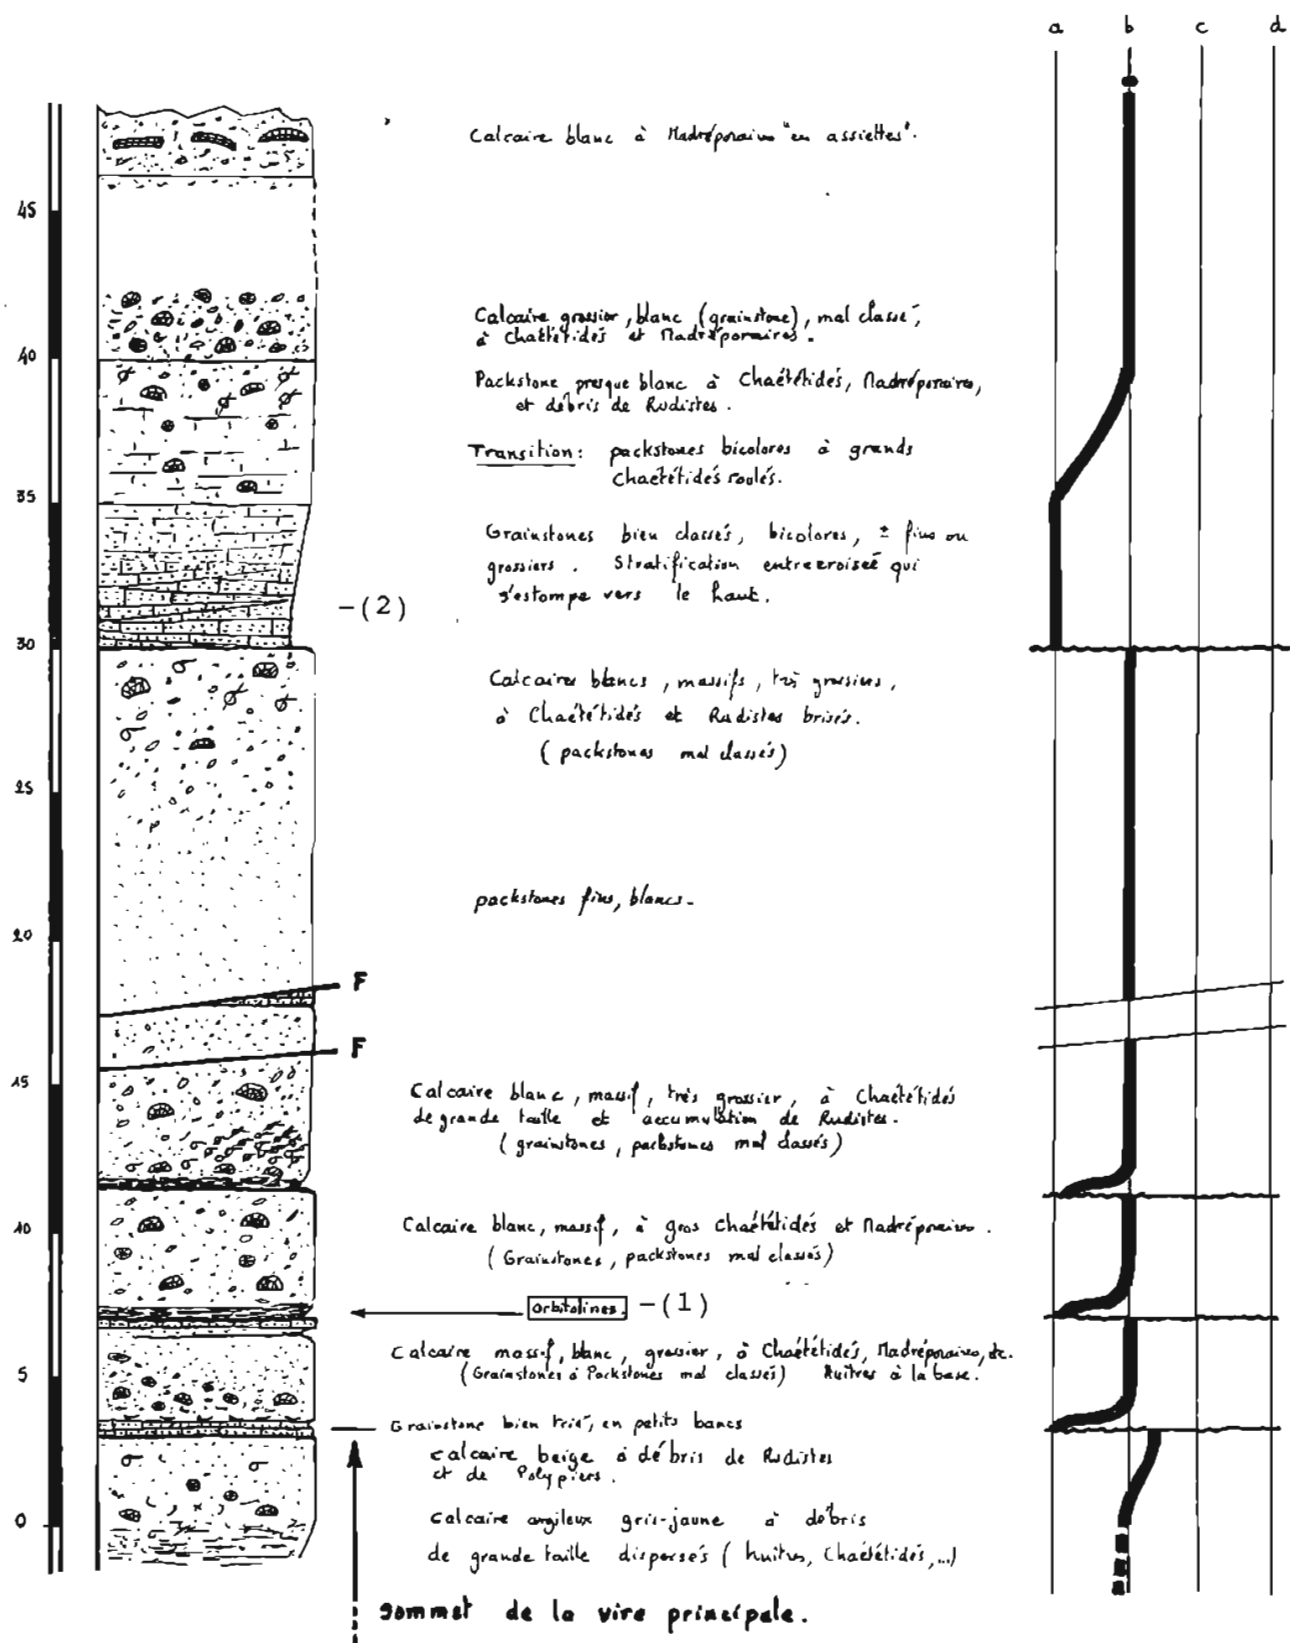 a b c d
Calcaire blanc à Madréporaires "en assiettes".
45
Calcaire grossier, blanc (grainstone), mal classé,
à Chaététidés et Madréporaires.
40
Packstone presque blanc à Chaététidés, Madréporaires,
et débris de Rudistes.
Transition: packstones bicolores à grands
Chaététidés roulés.
35
Grainstones bien classés, bicolores, ± fins ou
grossiers. Stratification entrecroisée qui
s'estompe vers le haut.
-(2)
30
Calcaires blancs, massifs, très grossiers,
à Chaététidés et Rudistes brisés.
(packstones mal classés)
25
packstones fins, blancs.
20
F
F
15
Calcaire blanc, massif, très grossier, à Chaététidés
de grande taille et accumulation de Rudistes.
(grainstones, packstones mal classés)
10
Calcaire blanc, massif, à gros Chaététidés et Madréporaires.
(Grainstones, packstones mal classés)
orbitolines. -(1)
Calcaire massif, blanc, grossier, à Chaététidés, Madréporaires, etc.
(Grainstones à Packstones mal classés) Huîtres à la base.
5
Grainstone bien trié, en petits bancs
calcaire beige à débris de Rudistes
et de Polypiers.
0
Calcaire argileux gris-jaune à débris
de grande taille dispersés (huîtres, Chaététidés,...)
sommet de la vire principale.